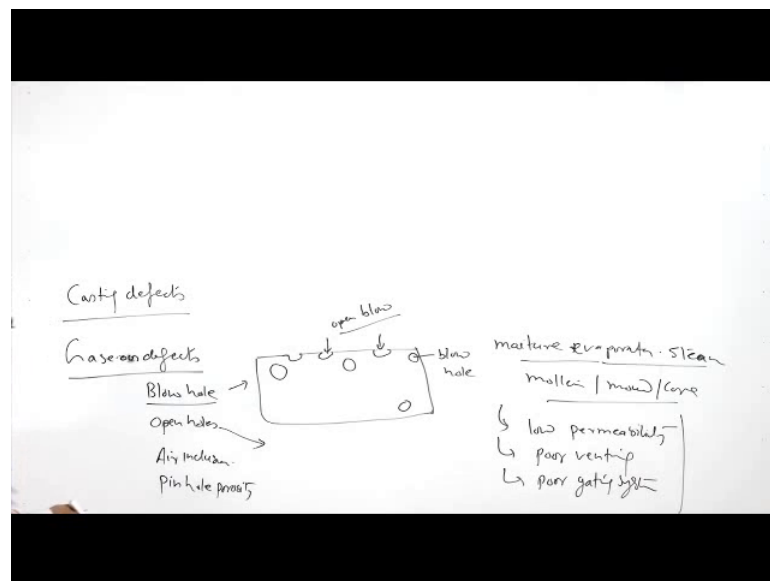 Casting defects
Gaseous defects
Blow hole
Open holes
Air inclusion
Pin hole porosity
open blow
blow
hole
moisture evaporation steam
molten / mould / core
low permeability
poor venting
poor gating system